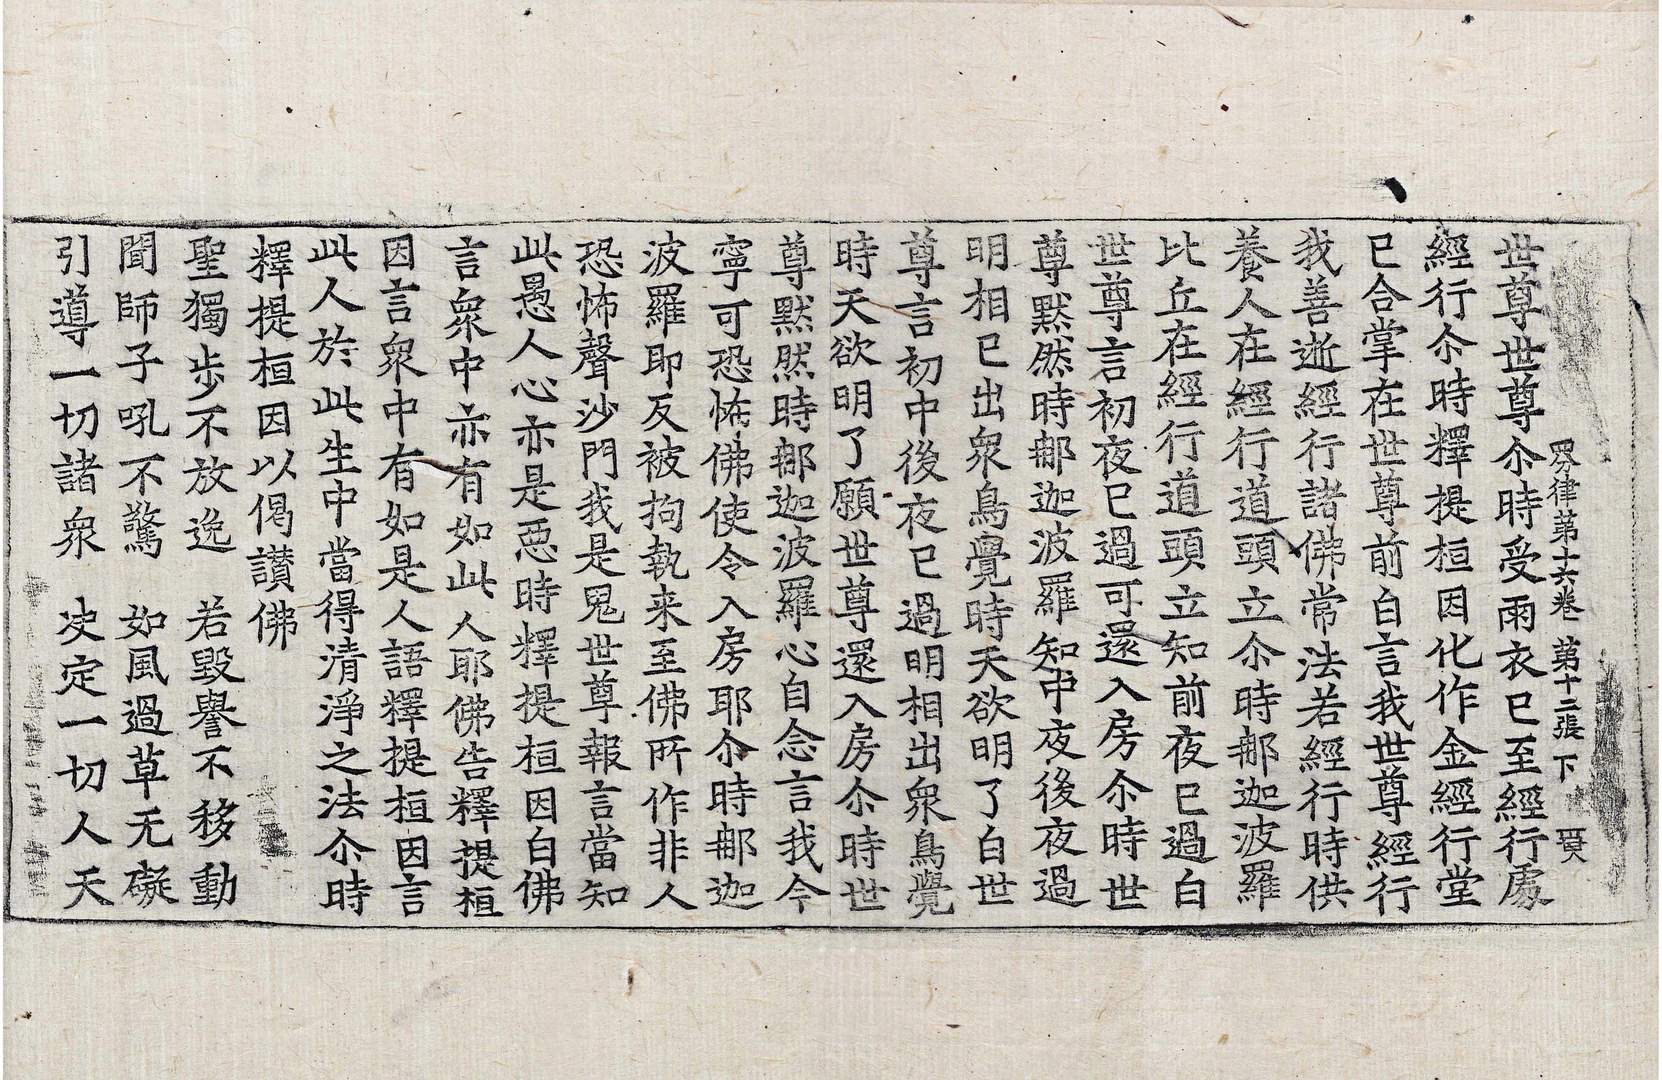 四分律第十六卷 第十二張 下 賈
世尊世尊尒時受雨衣已至經行處
經行尒時釋提桓因化作金經行堂
已合掌在世尊前白言我世尊經行
我善逝經行諸佛常法若經行時供
養人在經行道頭立尒時那迦波羅
比丘在經行道頭立知前夜已過白
世尊言初夜已過可還入房尒時世
尊默然時那迦波羅知中夜後夜過
明相已出衆鳥覺時天欲明了白世
尊言初中後夜已過明相出衆鳥覺
時天欲明了願世尊還入房尒時世
尊默然時那迦波羅心自念言我今
寧可恐怖佛使令入房耶尒時那迦
波羅即反被拘執来至佛所作非人
恐怖聲沙門我是鬼世尊報言當知
此愚人心亦是惡時釋提桓因白佛
言衆中亦有如此人耶佛告釋提桓
因言衆中有如是人語釋提桓因言
此人於此生中當得清淨之法尒時
釋提桓因以偈讃佛
聖獨步不放逸　若毀譽不移動
聞師子吼不驚　如風過草无礙
引導一切諸衆　决定一切人天